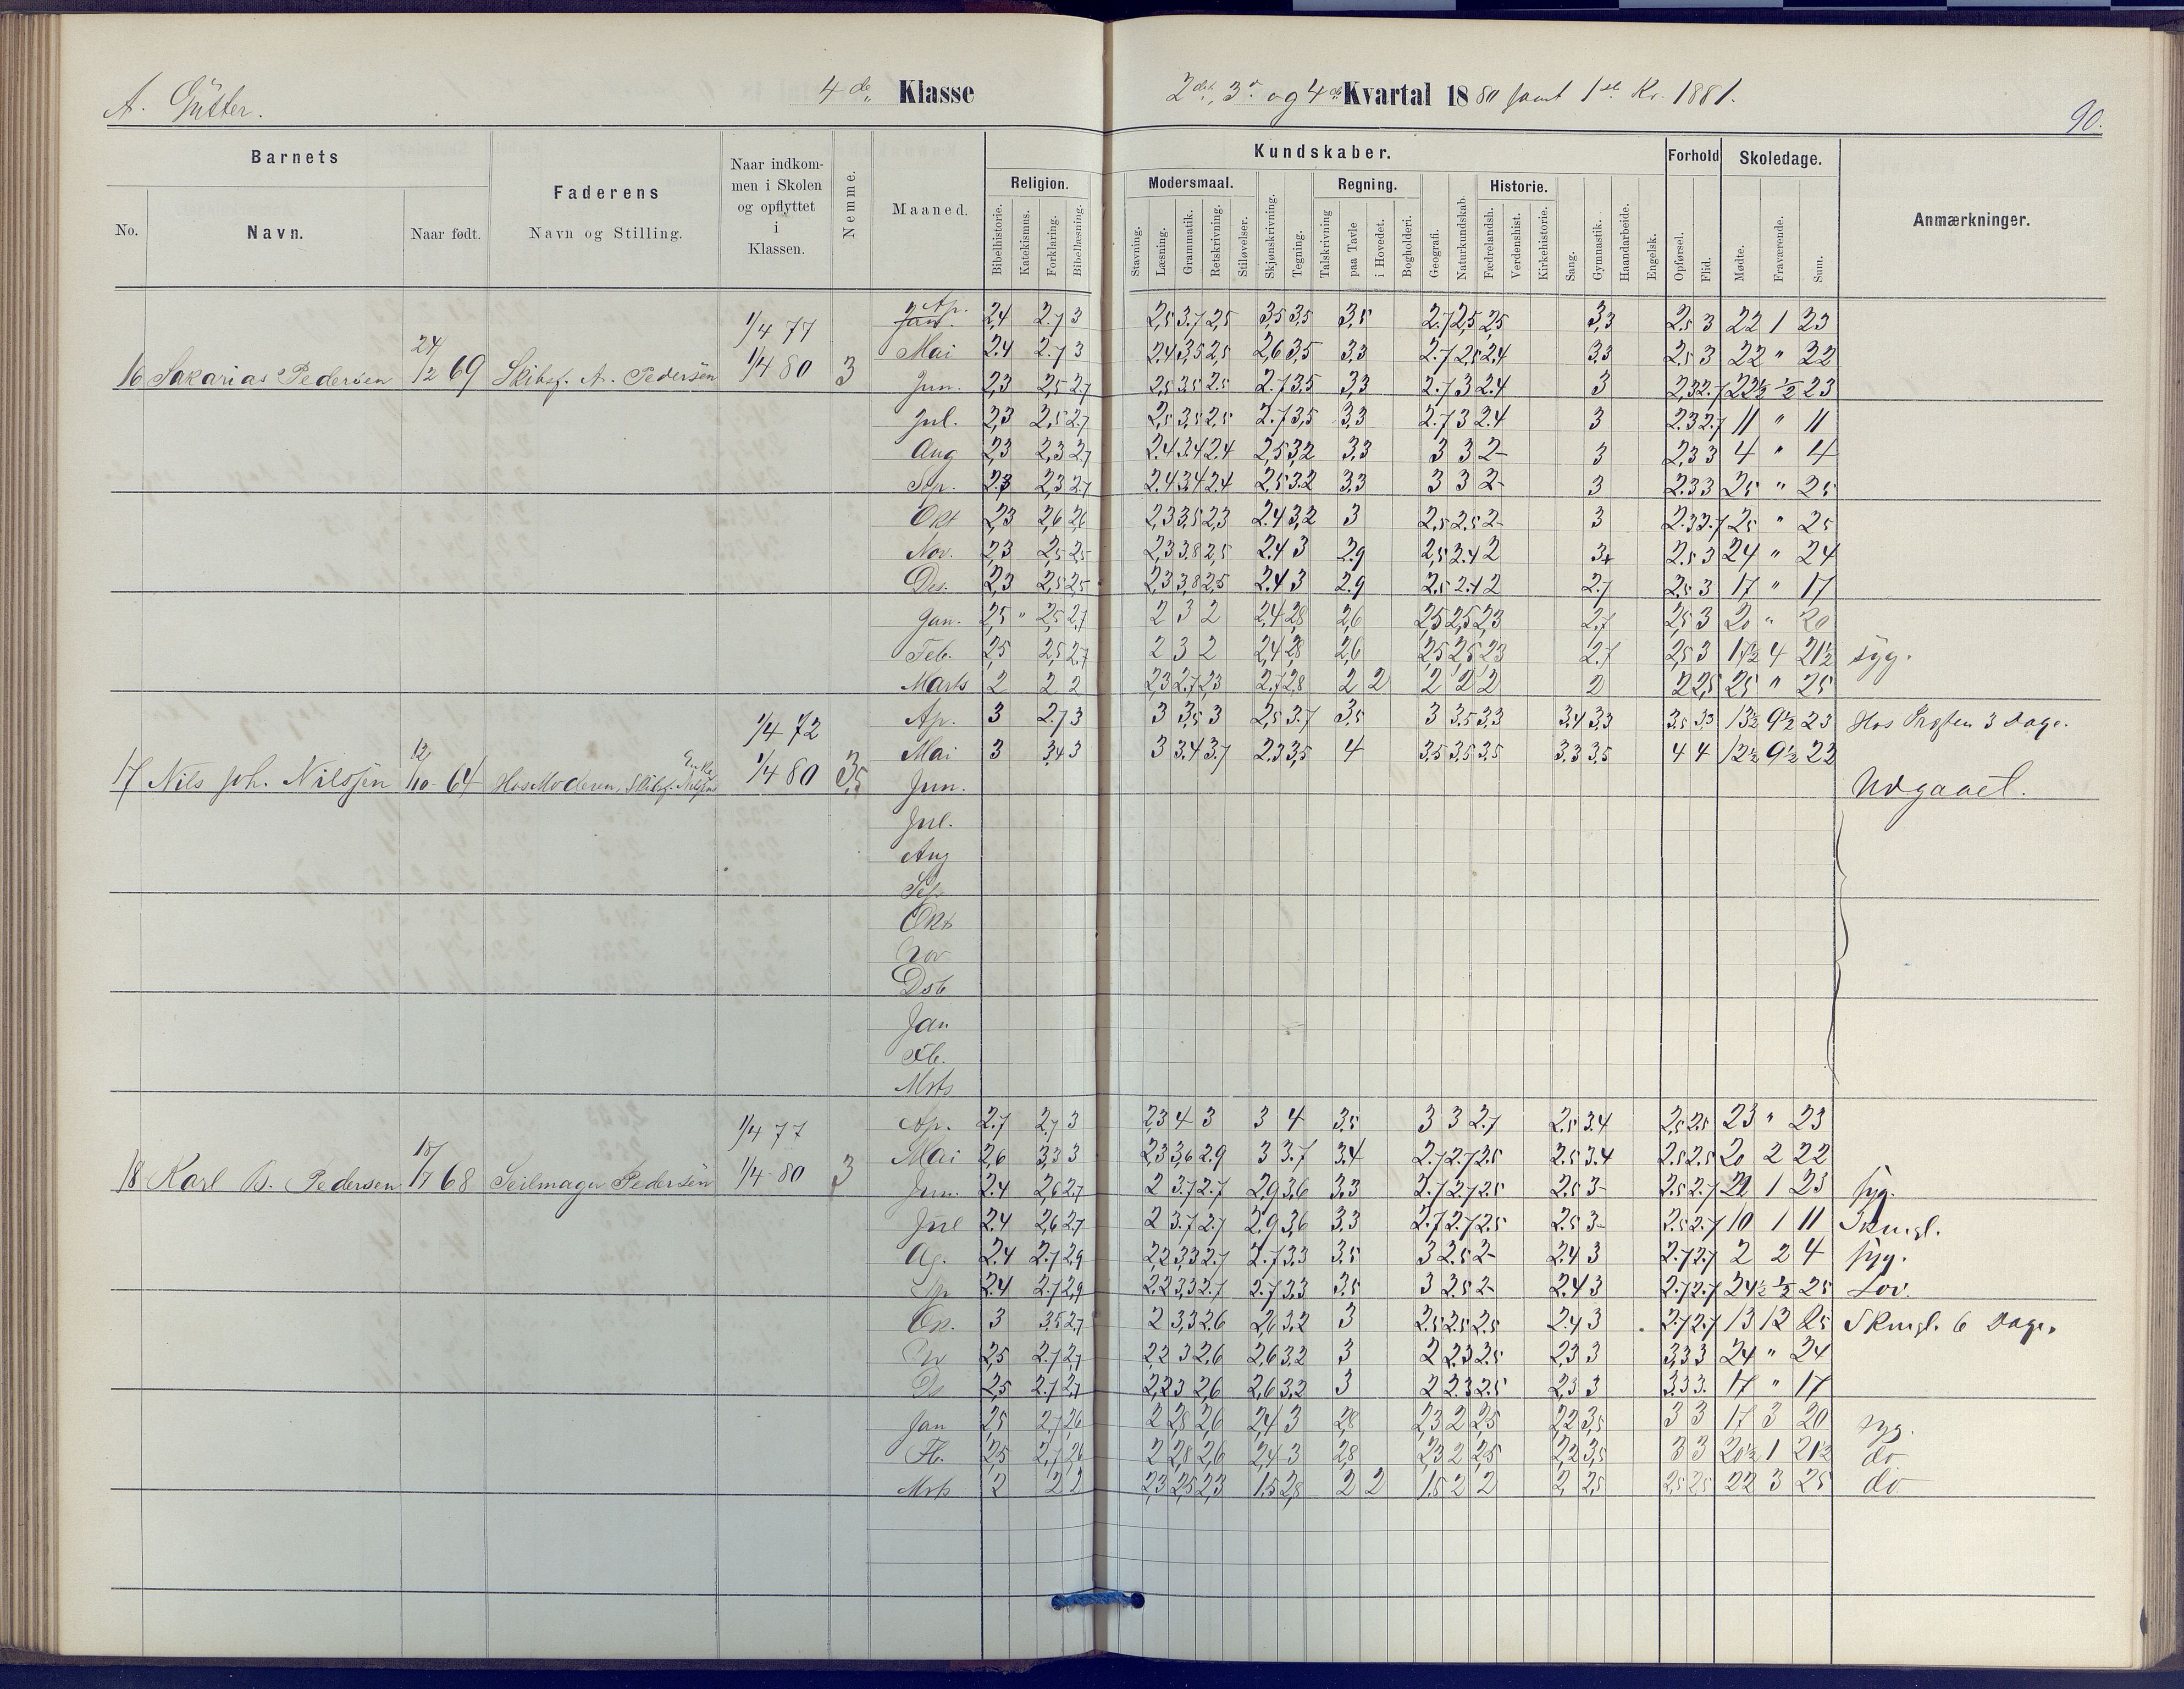 A. Gutter.
4de Klasse
2det, 3die og 4de Kvartal 1880 samt 1ste Kv. 1881.
90.
Barnets
No.
Navn.
Naar født.
Faderens
Navn og Stilling.
Naar indkom-
men i Skolen
og opflyttet
i
Klassen.
Nemme.
Maaned.
Kundskaber.
Religion.
Bibelhistorie.
Katekismus.
Forklaring.
Bibellæsning.
Modersmaal.
Stavning.
Læsning.
Grammatik.
Retskrivning.
Stiløvelser.
Skjønskrivning.
Tegning.
Regning.
Talskrivning
paa Tavle
i Hovedet.
Bogholderi.
Geografi.
Naturkundskab.
Historie.
Fædrelandsh.
Verdenshist.
Kirkehistorie.
Sang.
Gymnastik.
Haandarbeide.
Engelsk.
Forhold
Opførsel.
Flid.
Skoledage.
Mødte.
Fraværende.
Sum.
Anmærkninger.
16 Sakarias Pedersen 24/2 69 Skibsf. A. Pedersen 1/4 77 1/4 80 3
Ap. 2,4 2.7 3 2,5 3.7 2,5 3,5 3,5 3,5 2.7 2,5 2,5 3,3 2.5 3 22 1 23
Mai 2.4 2.7 3 2.4 3,5 2,5 2,6 3,5 3,3 2.7 2,5 2.4 3,3 2.5 3 22 " 22
Jun. 2,3 2,5 2.7 2,5 3.5 2.5 2.7 3.5 3,3 2.7 3 2.4 3 2,3 2.7 22½ ½ 23
Jul. 2,3 2,5 2.7 2,5 3,5 2,5 2.7 3,5 3,3 2.7 3 2.4 3 2.3 2.7 11 " 11
Aug 2,3 2,3 2.7 2.4 3.4 2.4 2,5 3,2 3,3 3 3 2- 3 2,3 3 4 " 4
Sep. 2.3 2,3 2.7 2.4 3.4 2.4 2,5 3.2 3,3 3 3 2- 3 2.3 3 25 " 25
Okt 2,3 2,6 2,6 2,3 3,5 2,3 2.4 3,2 3 2,5 2.5 2- 3 2.3 2.7 25 " 25
Nov. 2,3 2,5 2,5 2,3 3.8 2,5 2.4 3 2.9 2,5 2.4 2 3+ 2.5 3 24 " 24
Des. 2,3 2,5 2,5 2,3 3,8 2,5 2.4 3 2.9 2.5 2.4 2 2.7 2.5 3 17 " 17
Jan. 2,5 " 2,5 2,7 2 3 2 2,4 2,8 2,6 2,5 2,5 2,3 2,7 2,5 3 20 " 20
Feb. 2,5 2,5 2,7 2 3 2 2,4 2,8 2,6 2,5 2,5 2,3 2.7 2,5 3 17½ 4 21½ syg.
Marts 2 2 2 2,3 2.7 2,3 2.7 2,8 2 2 2 2 2 2 2 2,5 25 " 25
17 Nils Joh. Nilssen 12/10 64 Hos Moderen, Skibsf. Nilsens Enke 1/4 72 1/4 80 3,5
Ap. 3 2.7 3 3 3,5 3 2,5 3.7 3,5 3 3.5 3,3 3,4 3,3 3.5 3,5 13½ 9½ 23 Hos Præsten 3 Dage.
Mai 3 3,4 3 3 3.4 3.7 2.3 3,5 4 3,5 3,5 3,5 3.3 3,5 4 4 12½ 9½ 22
Jun. Udgaaet.
Jul.
Aug
Sep
Okt
Nov
Dsb
Jan
Fb.
Mrts
18 Karl B. Pedersen 18/7 68 Seilmager Pedersen 1/4 77 1/4 80 3
Ap. 2.7 2.7 3 2,3 4 3 3 4 3,5 3 3 2.7 2.5 3.4 2,5 2.5 23 " 23
Mai 2,6 3,3 3 2,3 3,6 2.9 3 3.7 3.4 2.7 2.7 2.5 2.5 3.4 2.5 2,5 20 2 22
Jun. 2.4 2,6 2.7 2 3.7 2.7 2,9 3,6 3,3 2.7 2.7 2.5 2.5 3- 2.5 2.7 22 1 23 syg.
Jul 2.4 2,6 2.7 2 3.7 2.7 2.9 3,6 3,3 2.7 2.7 2.5 2.5 3- 2.5 2.7 10 1 11 Skugl.
Ag. 2.4 2.7 2,9 2,2 3,3 2.7 2.7 3.3 3.5 3 2.5 2- 2.4 3 2.7 2.7 2 2 4 syg.
Sp 2.4 2.7 2,9 2.2 3,3 2.7 2.7 3.3 3.5 3 2.5 2- 2.4 3 2.7 2.7 24½ ½ 25 Lov.
Ok. 3 3,5 2.7 2 3,3 2.6 2,6 3.2 3 2.5 2.5 2.5 2.4 3 2.7 2.7 13 12 25 Skugl. 6 Dage.
Nv 2,5 2.7 2,7 2,2 3 2,6 2,6 3.2 3 2 2.3 2.5 2,3 3 3,3 3 24 " 24
Ds 2,5 2.7 2,7 2,2 3 2,6 2,6 3,2 3 2 2.3 2.5 2,3 3 3.3 3. 17 " 17
Jan 2,5 2,7 2,6 2 2,8 2,6 2,4 3 2,8 2,3 2 2,5 2,2 3,5 3 3 17 3 20 syg.
Fb. 2,5 2,7 2,6 2 2,8 2,6 2,4 3 2,8 2,3 2 2,5 2,2 3,5 3 3 20½ 1 21½ do
Mrts 2 2 2 2,3 2,5 2,3 1,5 2,8 2 2 1,5 2 2 2, 2,5 2,5 2,5 22 3 25 do